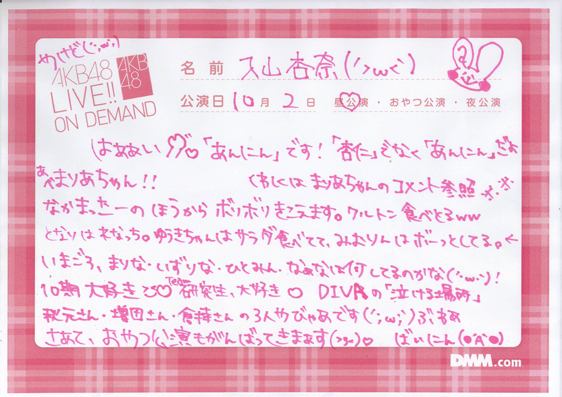 やけど(´;ω;`)
AKB48
LIVE!!
ON DEMAND
AKB
48
名前 入山杏奈(´っω<`)
公演日 10月 2日 昼公演・おやつ公演・夜公演
はぁぁい 「あんにん」です!「杏仁」でなく「あんにん」だよ
あべまりあちゃん!! くわしくはまりあちゃんのコメント参照
なかまったーの ほうから ボリボリきこえます。クルトン食べとるww
となりはれなっち。ゆうきちゃんはサラダ食べてて、みおりんはボーっとしてる。←
いまごろ、まりな・いずりな・ひとみん・なぁなは何してるのかな(´;ω;`)!
10期 大好き♡ Team研究生、大好き♡ DIVAの「泣ける場所」
秋元さん・増田さん・倉持さんの3人やびゃあです(´;ω;`)ぶわぁ
さあて、おやつ公演もがんばってきまぁす ♡ ばいにん(●'A'●)
DMM.com